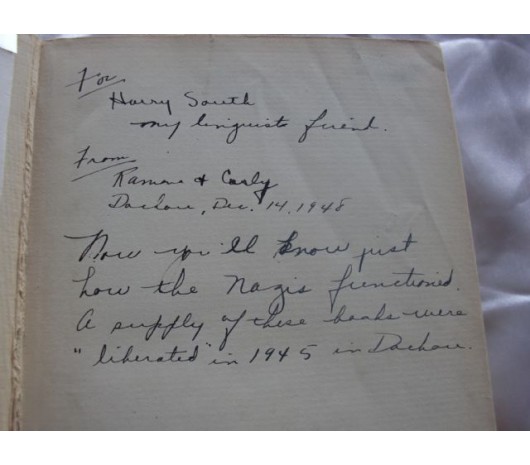 For
Harry South
my linguist friend.
From
Ramon & Carly
Dachau, Dec. 14, 1948
Now you'll know just
how the Nazis functioned.
A supply of these books were
"liberated" in 1945 in Dachau.